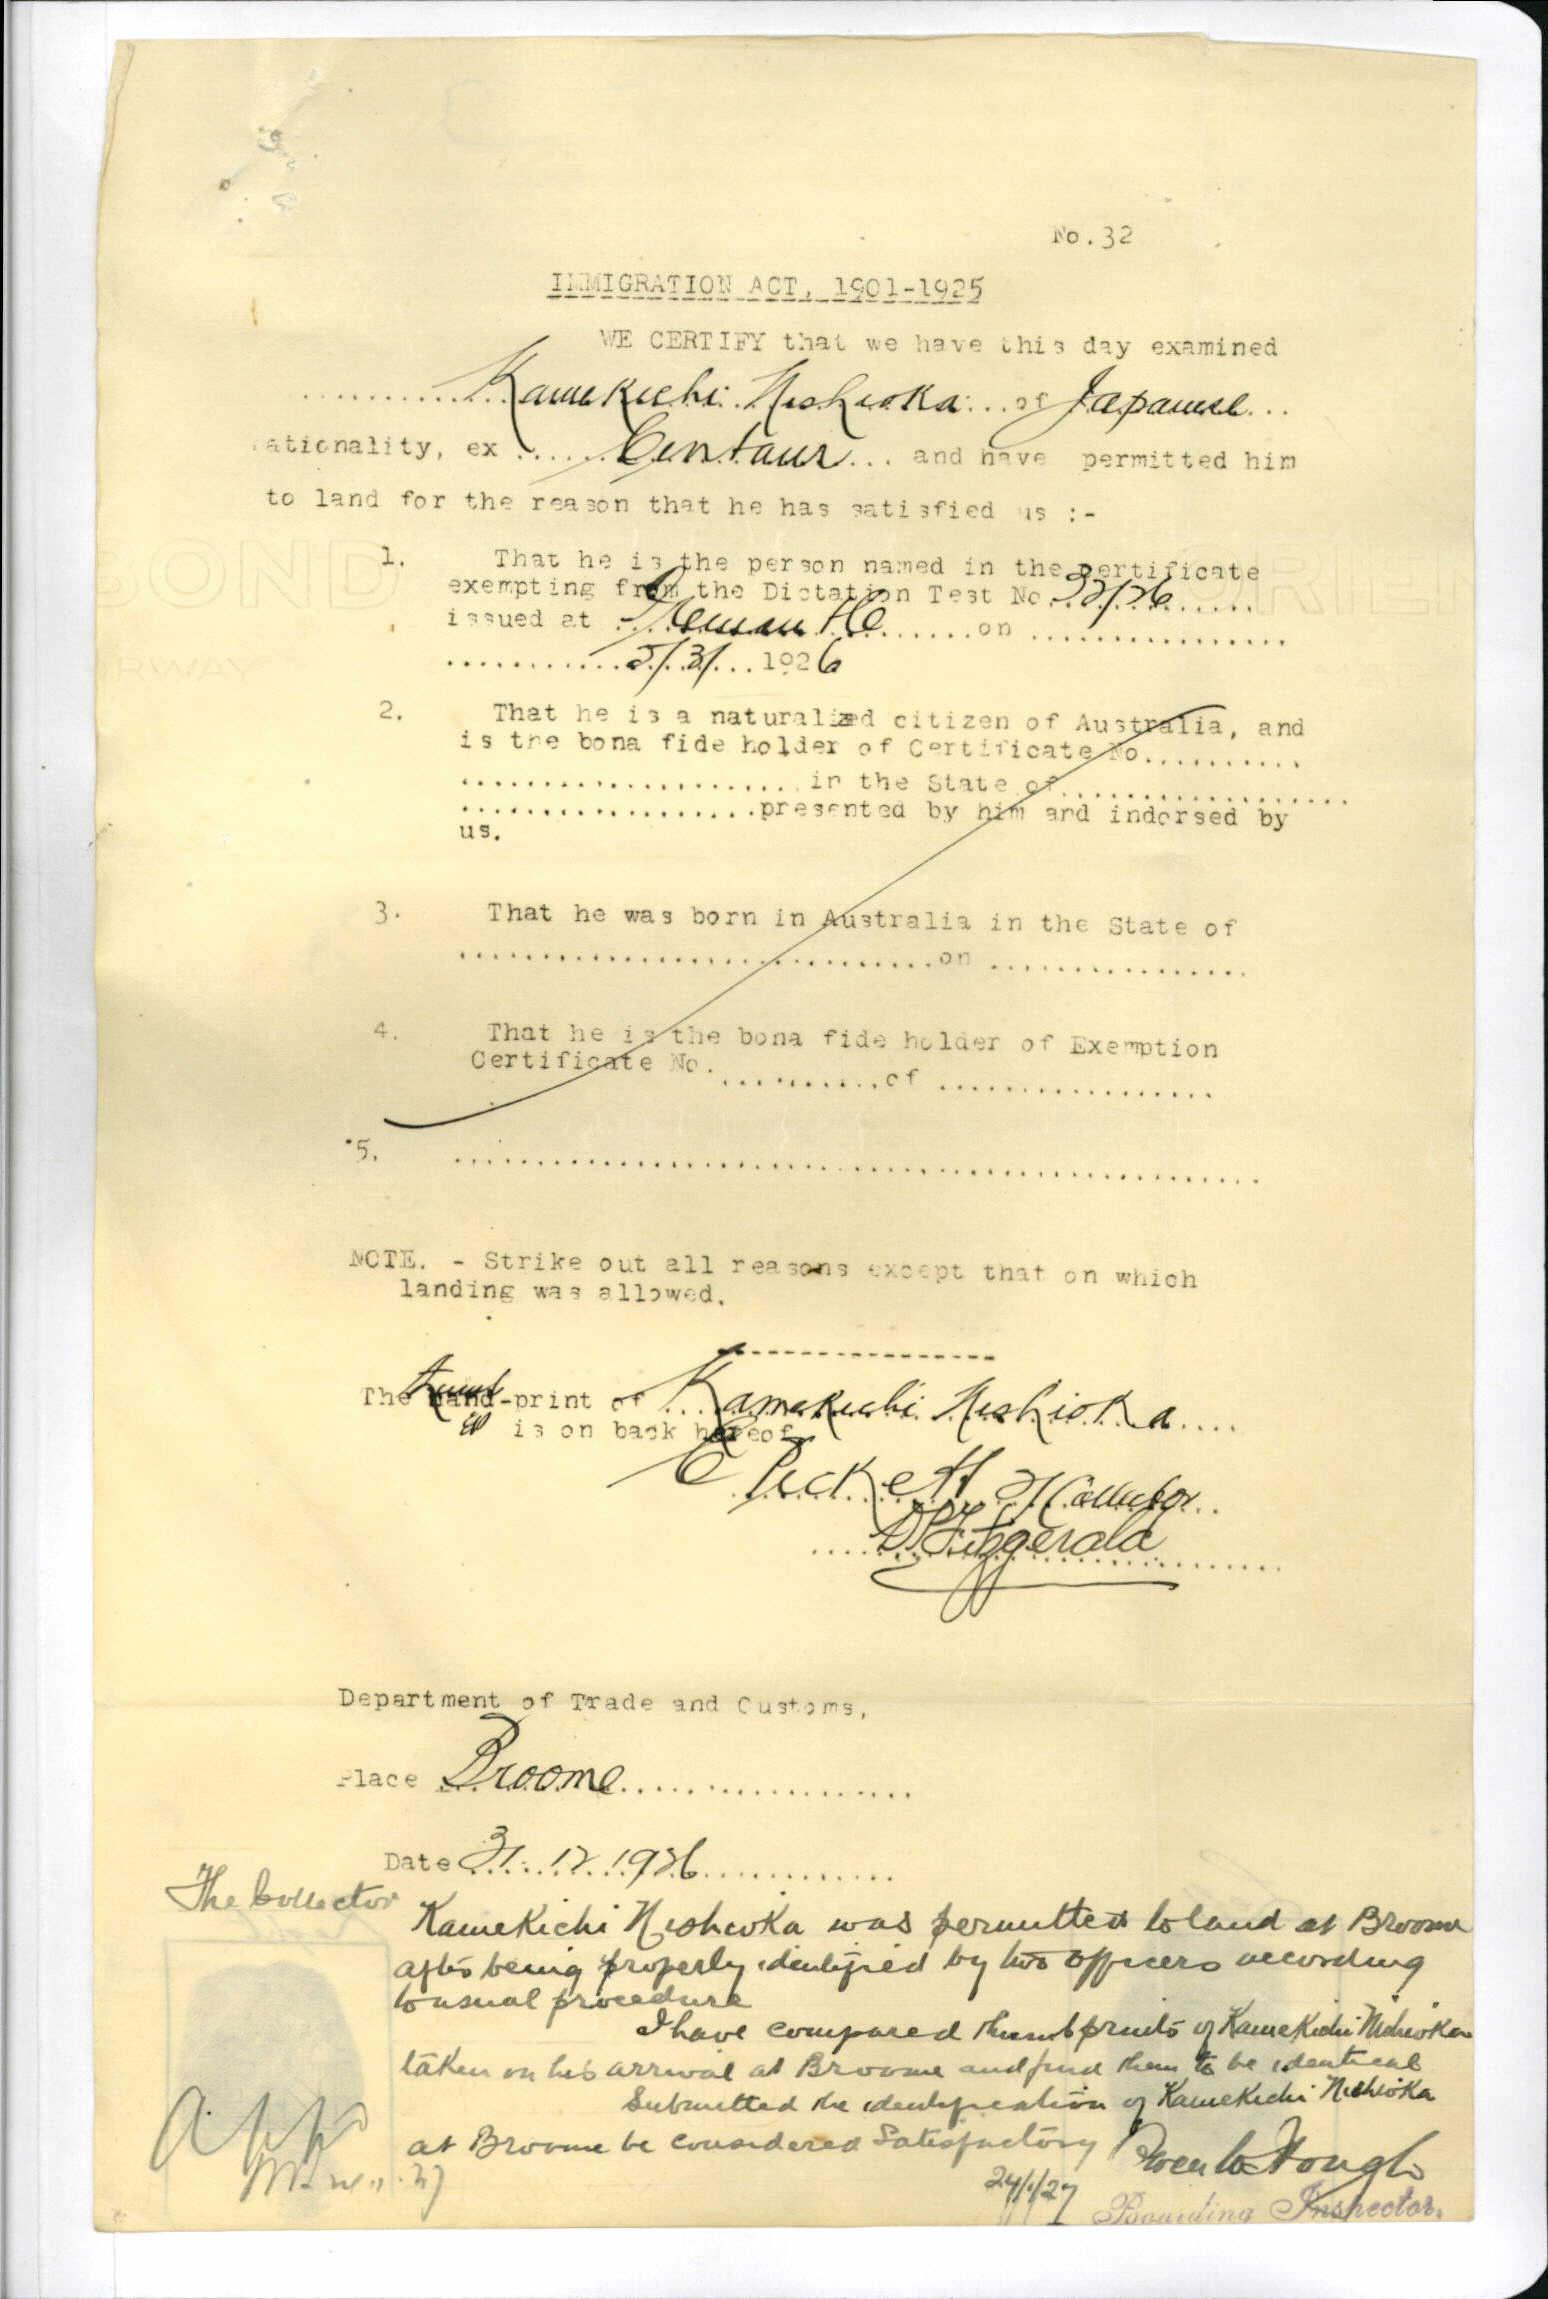 No. 32
IMMIGRATION ACT, 1901-1925
WE CERTIFY that we have this day examined
..........Kamekichi Nishioka...of Japanese...
nationality, ex ......Centaur... and have permitted him
to land for the reason that he has satisfied us :-
1. That he is the person named in the certificate
exempting from the Dictation Test No. 32/26......
issued at ............on ................
............5/3/...1926
2. That he is a naturalized citizen of Australia, and
is the bona fide holder of Certificate No...........
.....................in the State of...................
...................presented by him and indorsed by
us.
3. That he was born in Australia in the State of
..............................on ................
4. That he is the bona fide holder of Exemption
Certificate No. ..........of .................
5. ..................................................
NOTE. - Strike out all reasons except that on which
landing was allowed.
-----------------
The hand-print of Kamekichi Nishioka....
thumb
is on back hereof
E Pickett Collector..
D Fitzgerald
Department of Trade and Customs,
Place Broome..................
Date 31.12.1926............
The Collector
Kamekichi Nishioka was permitted to land at Broome
after being properly identified by two officers according
to usual procedure
I have compared thumbprints of Kamekichi Nishioka
taken on his arrival at Broome and find them to be identical
Submitted the identification of Kamekichi Nishioka
at Broome be considered Satisfactory
24/1/27
Boarding Inspector.